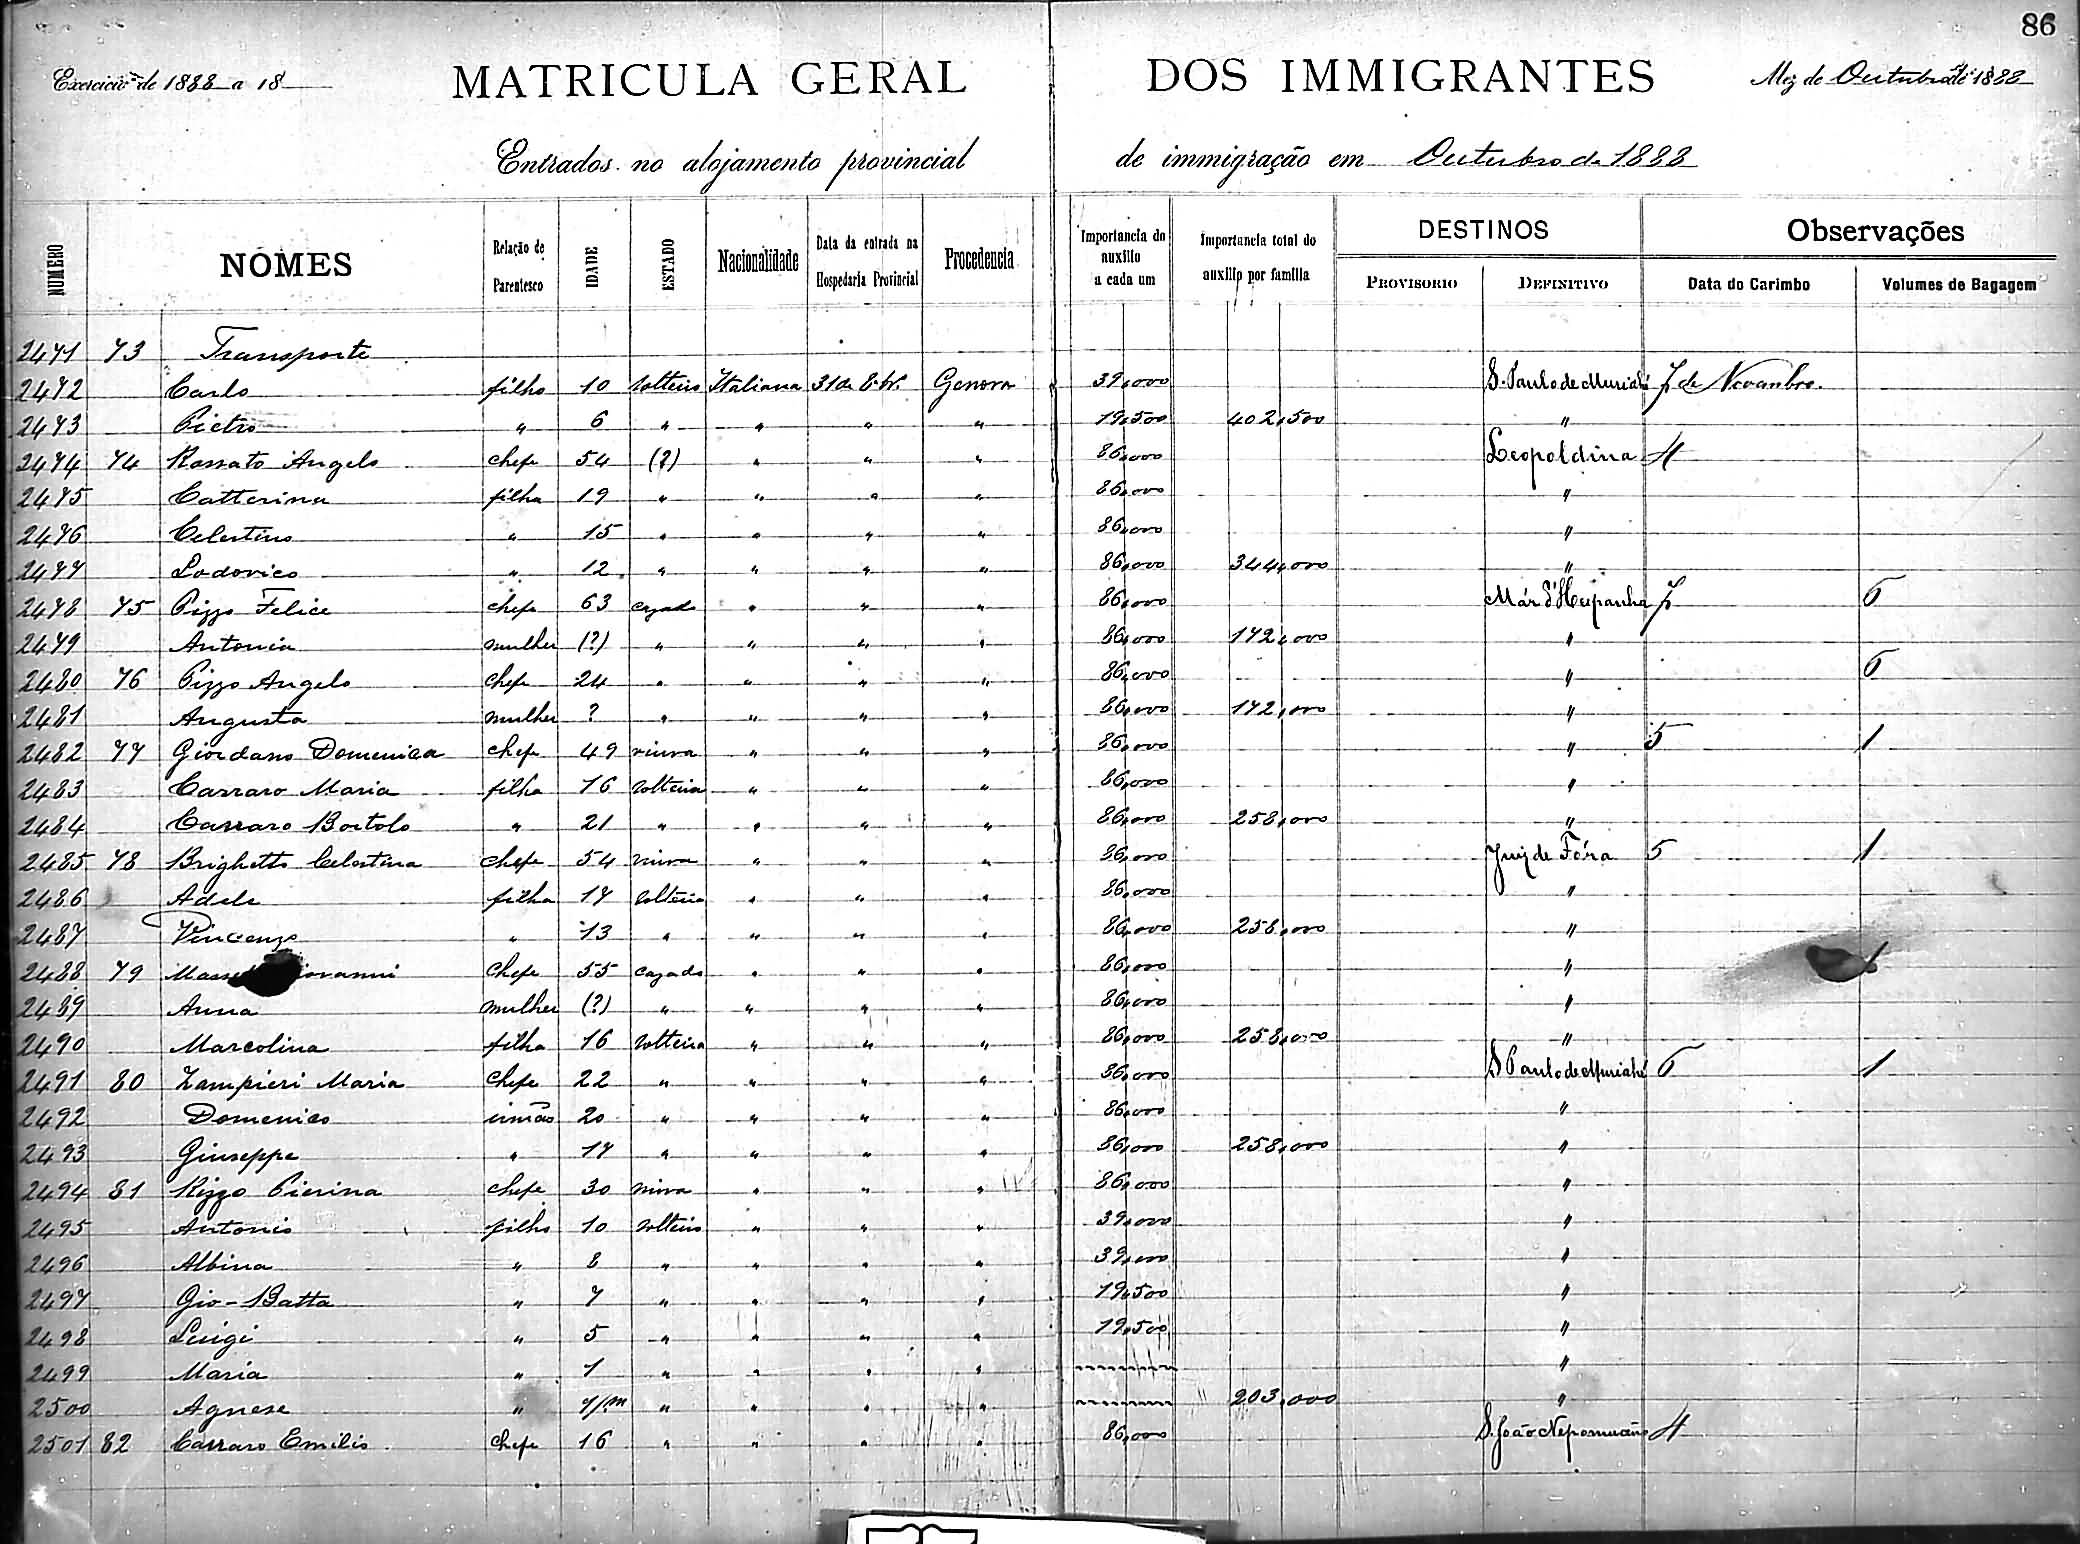 86
Exercicio de 1888 a 18
MATRICULA GERAL DOS IMMIGRANTES
Mez de Outubro de 1888
Entrados no alojamento provincial de immigração em Outubro de 1888
NUMERO NOMES Relação de Parentesco IDADE ESTADO Nacionalidade Data da entrada na Hospedaria Provincial Procedencia Importancia do auxilio a cada um Importancia total do auxilio por familia DESTINOS PROVISORIO DEFINITIVO Observações Data do Carimbo Volumes de Bagagem
2471 73 Transporte
2472 Carlo filho 10 solteiro Italiana 31 de 8.br. Genova 39,000 S. Paulo de Muriahé 7 de Novembro.
2473 Pietro " 6 " " " " 19,500 402,500 "
2474 74 Rossato Angelo chefe 54 (?) " " " 86,000 Leopoldina 4
2475 Catterina filha 19 " " " " 86,000 "
2476 Celestino " 15 " " " " 86,000 "
2477 Lodovico " 12 " " " " 86,000 344,000 "
2478 75 Pizzo Felice chefe 63 cazado " " " 86,000 Már d'Hespanha 7 6
2479 Antonia mulher (?) " " " " 86,000 172,000 "
2480 76 Pizzo Angelo chefe 24 " " " " 86,000 " 6
2481 Augusta mulher ? " " " " 86,000 172,000 "
2482 77 Giordano Domenica chefe 49 viuva " " " 86,000 " 5 1
2483 Carraro Maria filha 16 solteira " " " 86,000 "
2484 Carraro Bortolo " 21 " " " " 86,000 258,000 "
2485 78 Brighetto Celestina chefe 54 viuva " " " 86,000 Juiz de Fóra 5 1
2486 Adele filha 17 solteira " " " 86,000 "
2487 Vincenzo " 13 " " " " 86,000 258,000 "
2488 79 chefe 55 cazado " " " 86,000 " 1
2489 Anna mulher (?) " " " " 86,000 "
2490 Marcolina filha 16 solteira " " " 86,000 258,000 "
2491 80 Zampieri Maria chefe 22 " " " " 86,000 S Paulo de Muriahé 6 1
2492 Domenico irmão 20 " " " " 86,000 "
2493 Giuseppe " 17 " " " " 86,000 258,000 "
2494 81 Rizzo Pierina chefe 30 viuva " " " 86,000 "
2495 Antonio filho 10 solteiro " " " 39,000 "
2496 Albina " 8 " " " " 39,000 "
2497 Gio-Batta " 7 " " " " 19,500 "
2498 Luigi " 5 " " " " 19,500 "
2499 Maria " 1 " " " " "
2500 Agnese " 7/m " " " " 203,000 "
2501 82 Carraro Emilio chefe 16 " " " " 86,000 S. João Nepomuceno 4